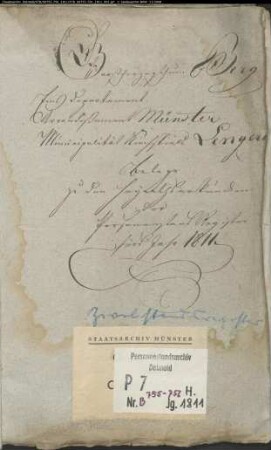 Großherzogthum Berg
Ems Departement
Arrondissement Münster
Municipalität Kirchspiels Lengerich
Belege
zu den
der
Personenstands Register
fürs Jahr 1811.
Zivilstandsregister
STAATSARCHIV MÜNSTER
Personenstandsarchiv
Detmold
P 7 H.
Nr. B 795-758 Jg. 1811